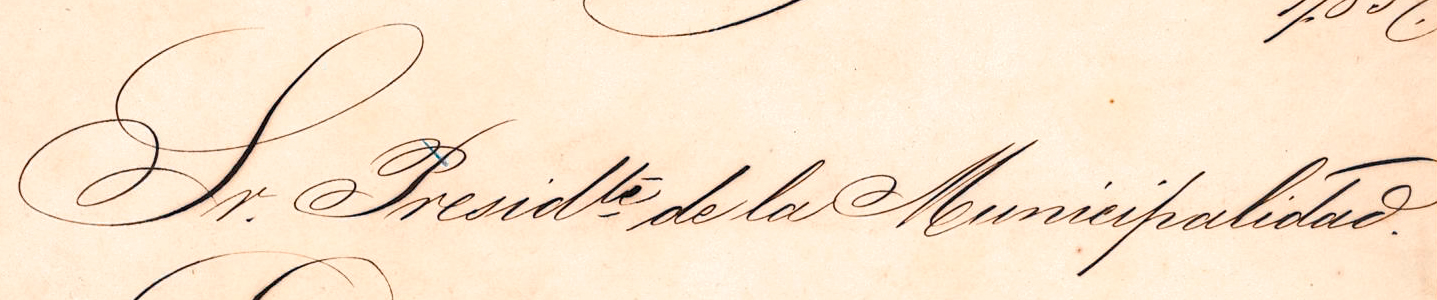 Sr. Presidte de la Municipalidad.